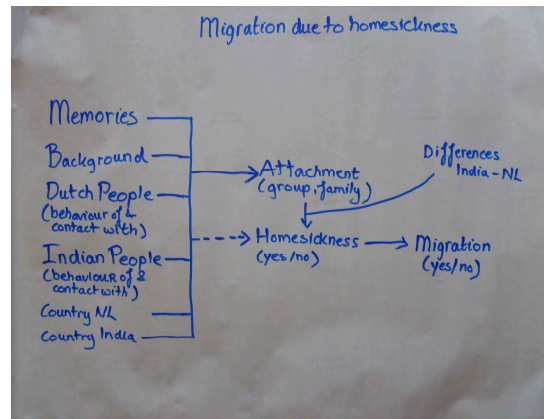 Migration due to homesickness
Memories
Background
Dutch People
(behaviour of &
contact with)
Indian People
(behaviour of &
contact with)
Country NL
Country India
Attachment
(group, family)
Homesickness
(yes/no)
Differences
India - NL
Migration
(yes/no)